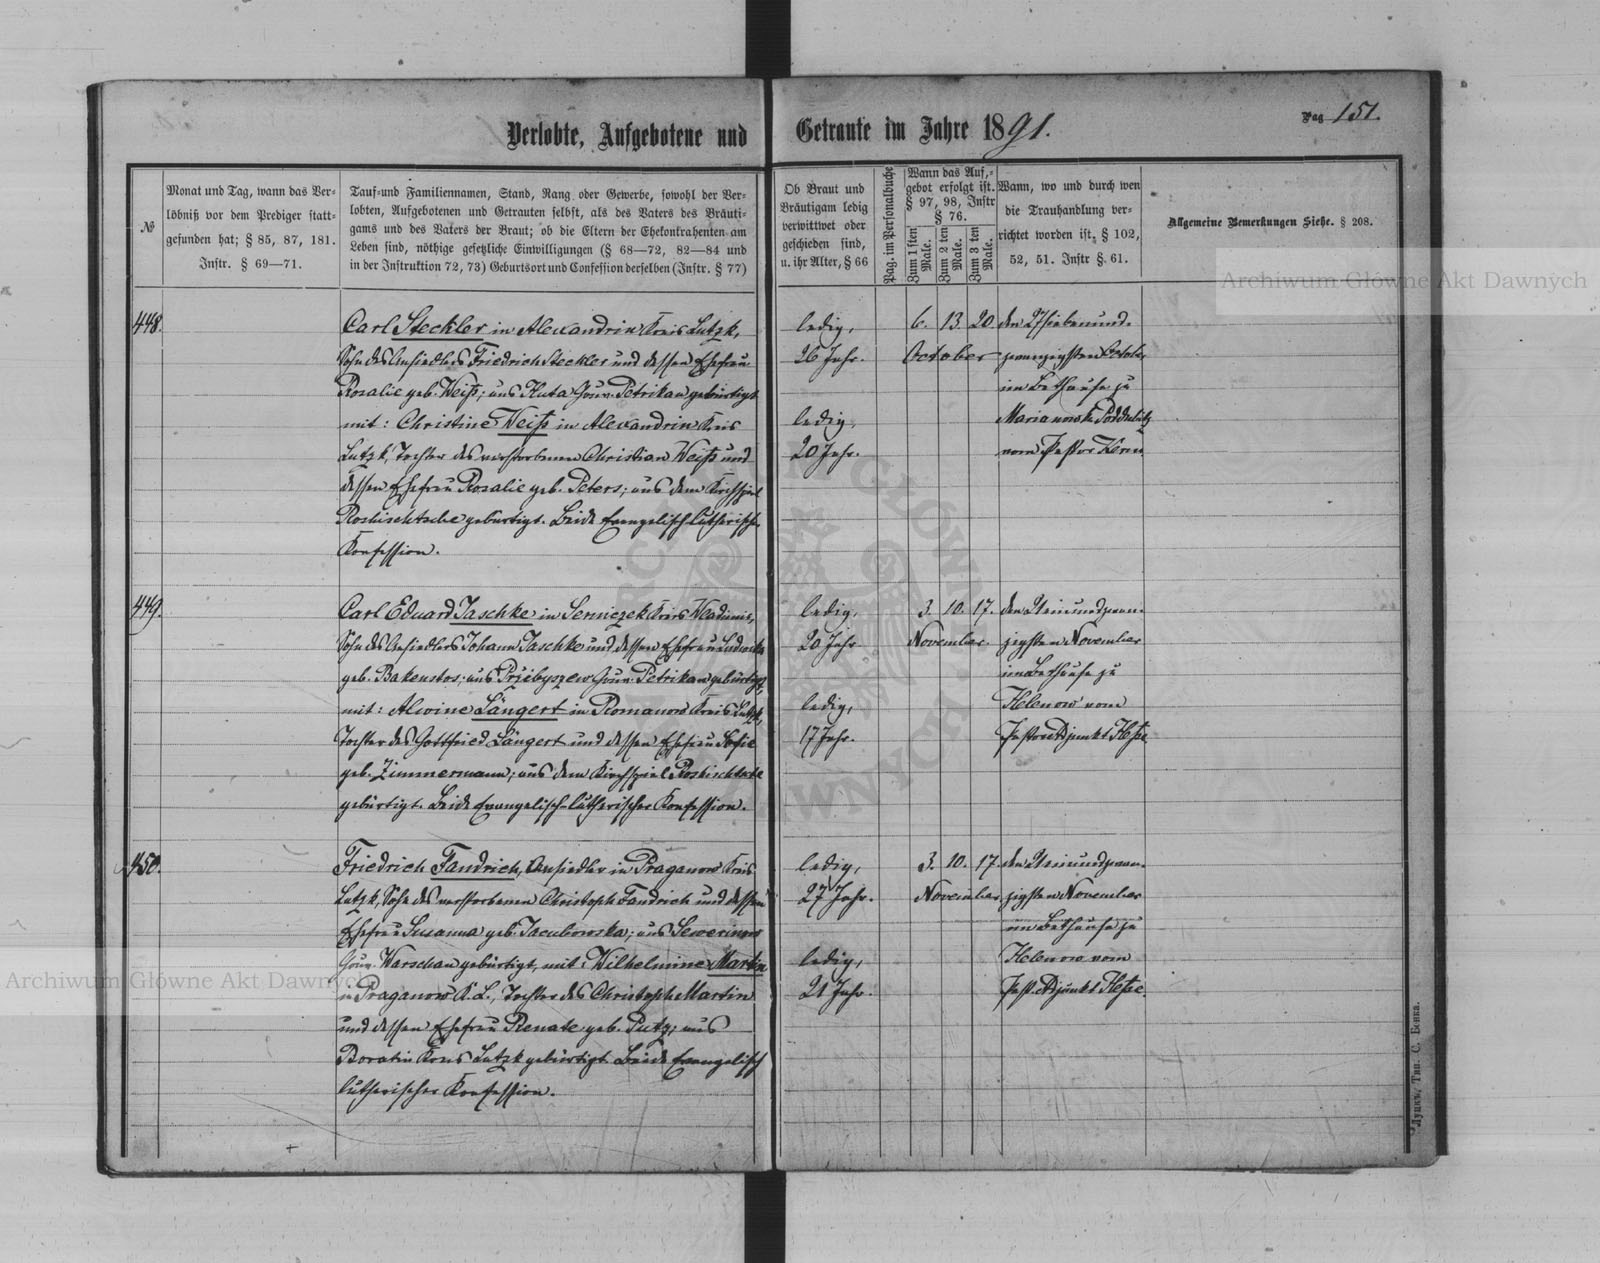 Verlobte, Aufgebotene und Getraute im Jahre 1891.
Pag 151.
№
Monat und Tag, wann das Ver-
löbniß vor dem Prediger statt-
gefunden hat; § 85, 87, 181.
Instr. § 69—71.
Tauf-und Familiennamen, Stand, Rang oder Gewerbe, sowohl der Ver-
lobten, Aufgebotenen und Getrauten selbst, als des Vaters des Bräuti-
gams und des Vaters der Braut; ob die Eltern der Ehekontrahenten am
Leben sind, nöthige gesetzliche Einwilligungen (§ 68—72, 82—84 und
in der Instruktion 72, 73) Geburtsort und Confession derselben (Instr. § 77)
Ob Braut und
Bräutigam ledig
verwittwet oder
geschieden sind,
u. ihr Alter, § 66
Pag. im Personalbuche
Wann das Auf-
gebot erfolgt ist.
§ 97, 98, Instr
§ 76.
Zum 1 sten Male.
Zum 2 ten Male.
Zum 3 ten Male.
Wann, wo und durch wen
die Trauhandlung ver-
richtet worden ist, § 102,
52, 51. Instr §. 61.
Allgemeine Bemerkungen Siehe. § 208.
448.
Carl Steckler in Alexandrin Kreis Lutzk,
Sohn des Ansiedlers Friedrich Steckler und dessen Ehefrau
Rosalie geb. Weiß; aus Huta Gouv. Petrikau gebürtigt
mit: Christine Weiß in Alexandrin Kreis
Lutzk, Tochter des verstorbenen Christian Weiß und
dessen Ehefrau Rosalie geb. Peters; aus dem Kirchspiel
Roshischtsche gebürtigt. Beide Evangelisch-lutherischer
Konfession.
ledig,
26 Jahr.
ledig,
20 Jahr.
6. 13. 20.
October
den 27 siebenund-
zwanzigsten October
im Bethause zu
Marianowk Poddubitz
vom Pastor Kerm
449.
Carl Eduard Jaschke in Serniczek Kreis Wladimir,
Sohn des Ansiedlers Johann Jaschke und dessen Ehefrau Ludowika
geb. Bakenstos; aus Przibyszew Gouv. Petrikau gebürtigt,
mit: Alwine Längert in Romanow Kreis Lutzk,
Tochter des Gottfried Längert und dessen Ehefrau Sofie
geb. Zimmermann; aus dem Kirchspiel Roshischtsche
gebürtigt. Beide Evangelisch-lutherischer Konfession.
ledig,
20 Jahr
ledig,
17 Jahr.
3. 10. 17.
November.
den 21 einundzwan-
zigsten November
im Bethause zu
Helenow vom
Pastor Adjunkt Hesse
450.
Friedrich Fandrich, Ansiedler in Praganow Kreis
Lutzk, Sohn des verstorbenen Christoph Fandrich und dessen
Ehefrau Susanna geb. Jacubowska; aus Sewerinow
Gouv. Warschau gebürtigt, mit: Wilhelmine Martin
in Praganow K. L., Tochter des Christoph Martin
und dessen Ehefrau Renate geb. Putz; aus
Boratin Kreis Lutzk gebürtigt. Beide Evangelisch
lutherischer Konfession.
ledig,
27 Jahr.
ledig,
21 Jahr.
3. 10. 17.
November
den 21 einundzwan-
zigsten November
im Bethause zu
Helenow vom
Past. Adjunkt Hesse.
Луцкъ, Тип. С. Бенка.
Archiwum Główne Akt Dawnych
Archiwum Główne Akt Dawnych